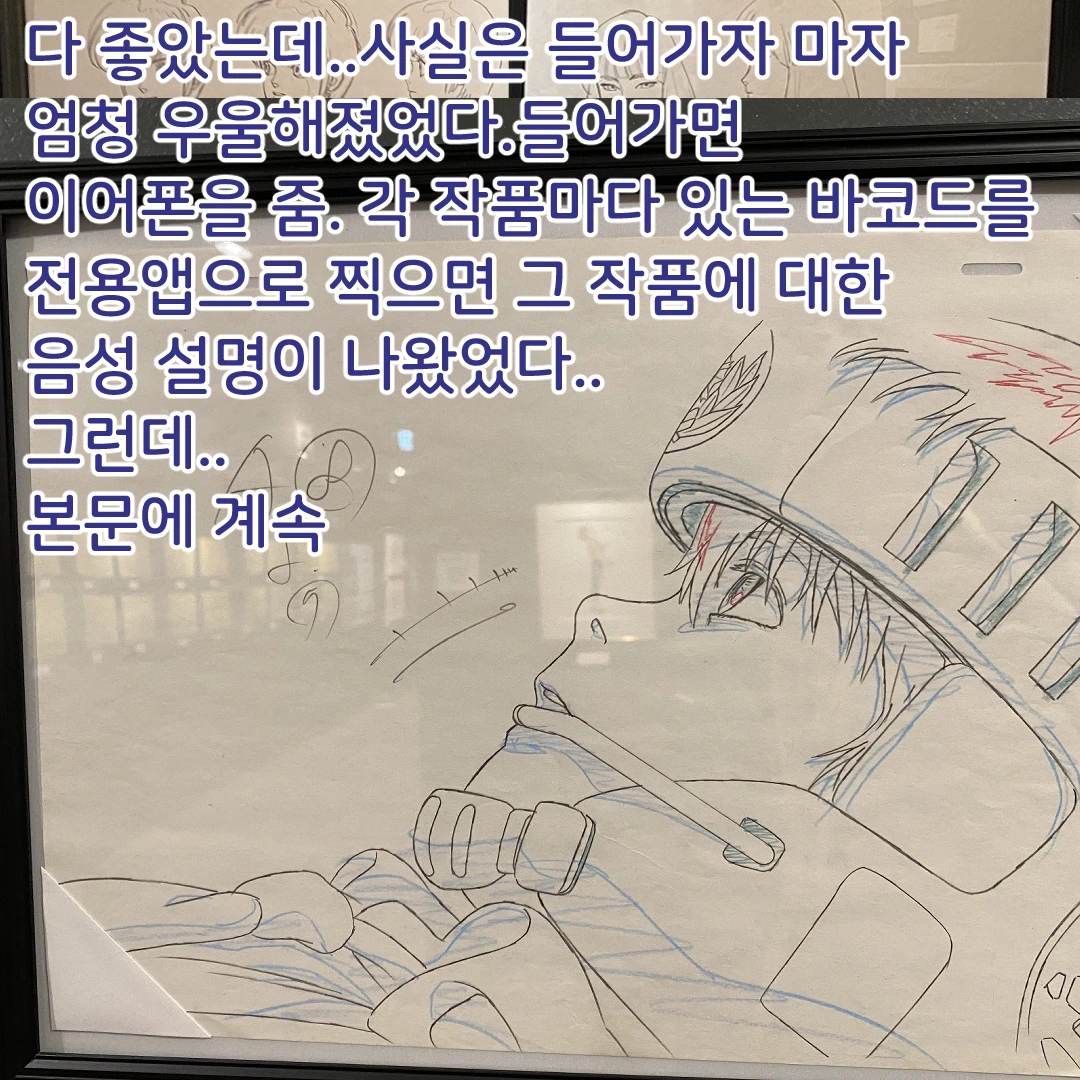 다 좋았는데..사실은 들어가자 마자
엄청 우울해졌었다.들어가면
이어폰을 줌. 각 작품마다 있는 바코드를
전용앱으로 찍으면 그 작품에 대한
음성 설명이 나왔었다..
그런데..
본문에 계속